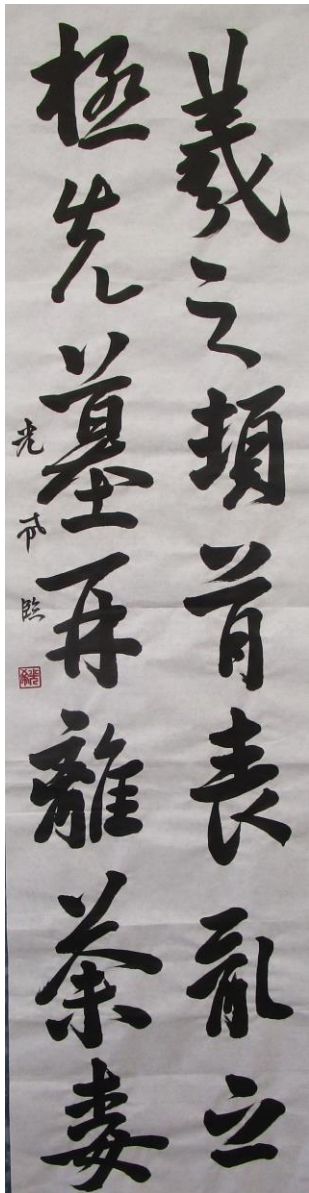 羲之頓首喪亂之
極先墓再離荼毒
臨